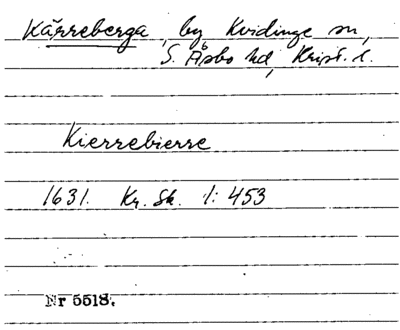 Kärreberga, by Kvidinge sn,
S. Åsbo hd, Krist. l.
Kierrebierre
1631. Kr. Sk. 1: 453
Nr 5518.